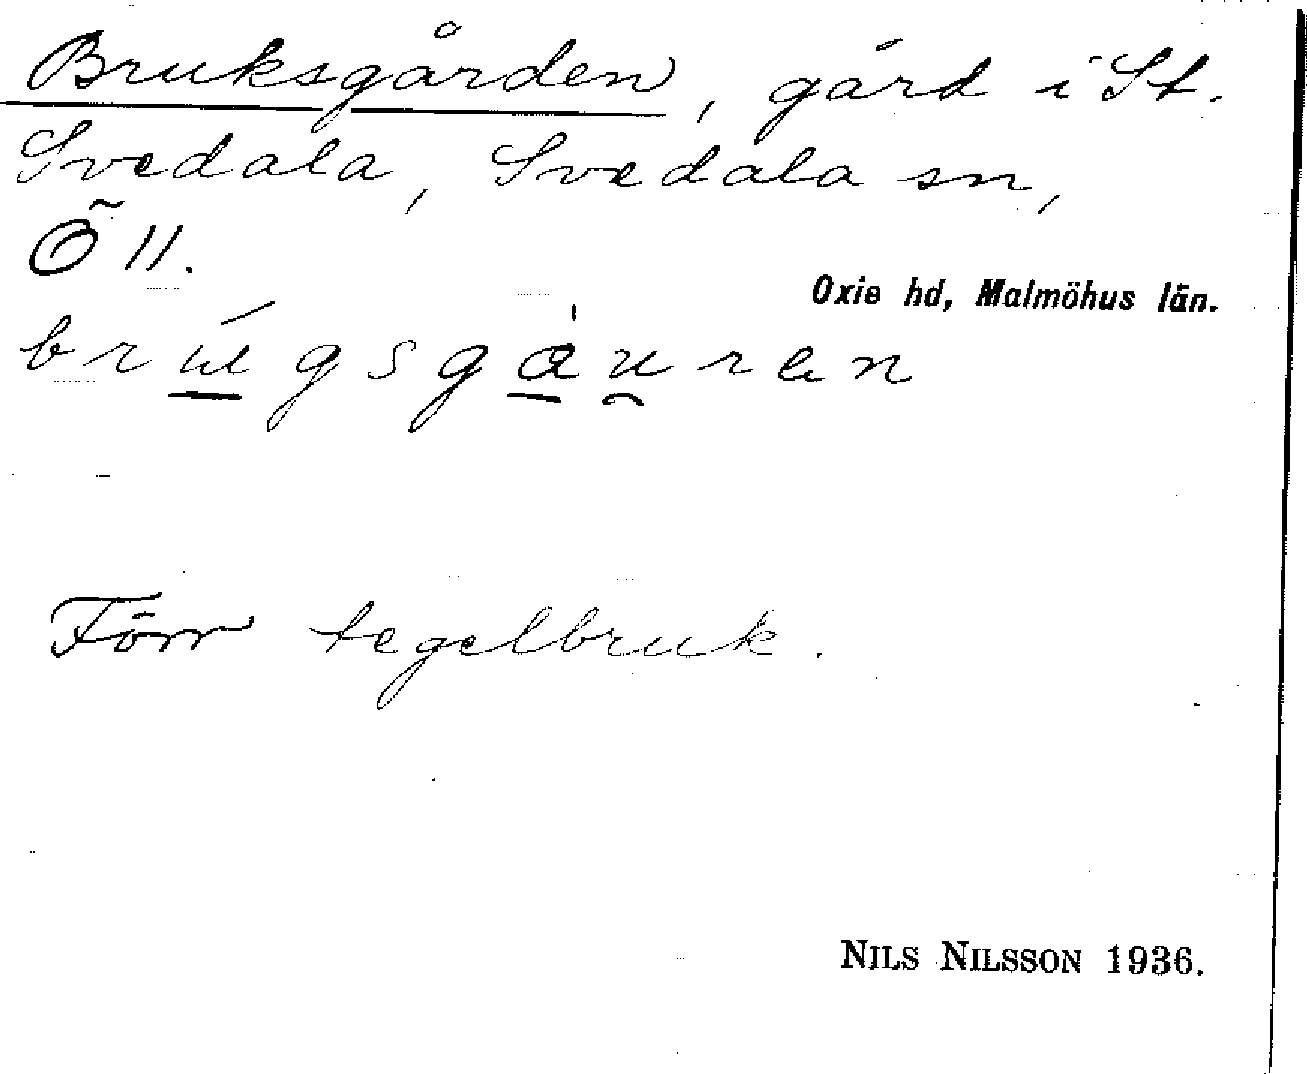 Bruksgården, gård i St.
Svedala, Svedala sn,
Ö 11.
Oxie hd, Malmöhus län.
Förr tegelbruk.
NILS NILSSON 1936.